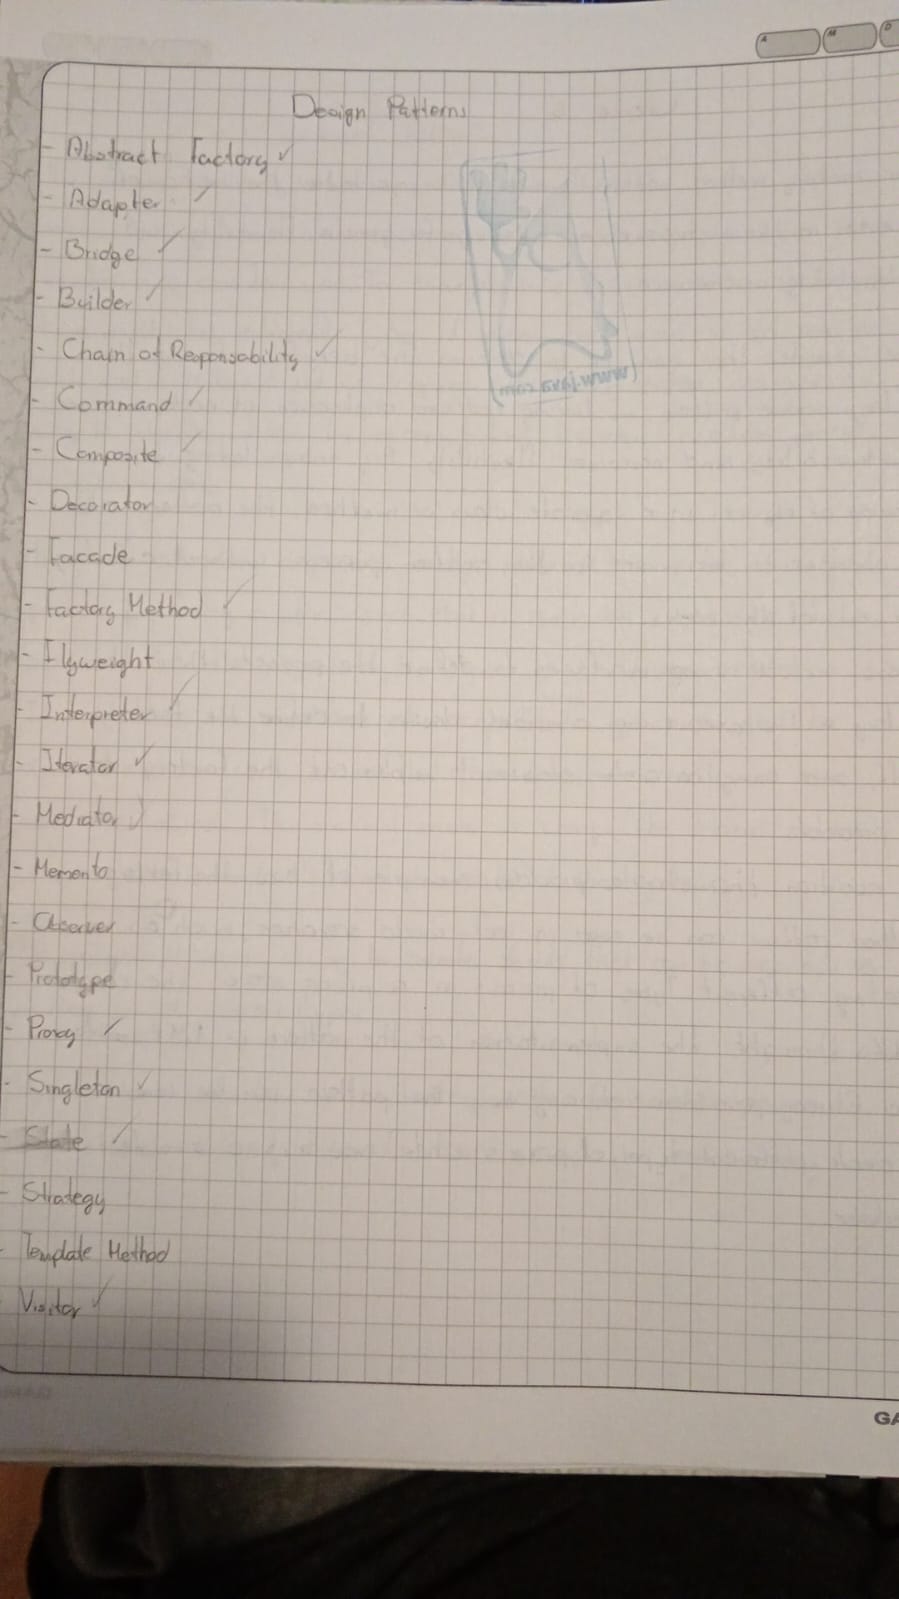 Design Patterns
- Abstract Factory ✓
- Adapter ✓
- Bridge ✓
- Builder ✓
- Chain of Responsability ✓
- Command ✓
- Composite ✓
- Decorator
- Facade
- Factory Method ✓
- Flyweight
- Interpreter ✓
- Iterator ✓
- Mediator ✓
- Memento
- Observer
- Prototype
- Proxy ✓
- Singleton ✓
- State ✓
- Strategy
- Template Method
- Visitor ✓
(www.java.com)